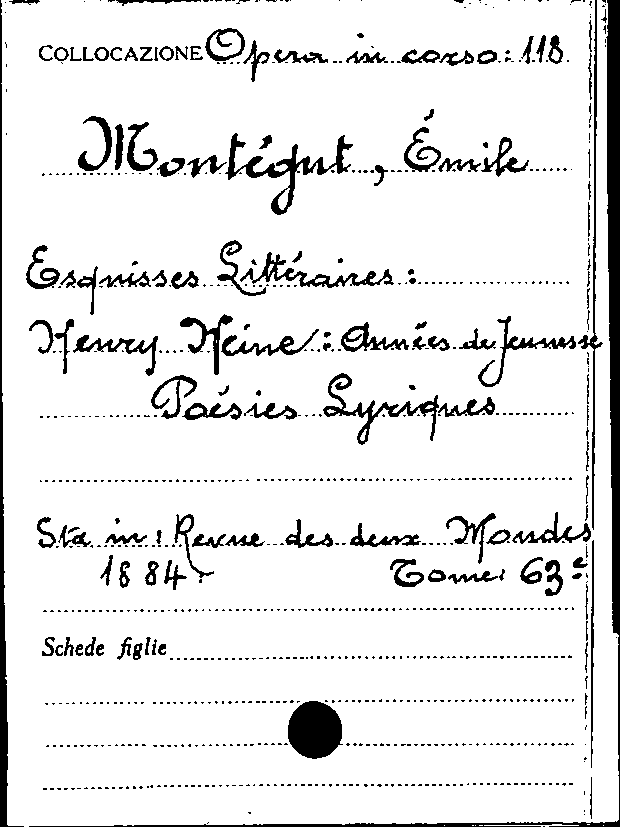 COLLOCAZIONE Opera in corso: 118
Montégut, Émile
Esquisses Littéraires:
Henry Heine: Années de Jeunesse
Poésies Lyriques
Sta in: Revue des deux Mondes
1884. Tome: 63e
Schede figlie